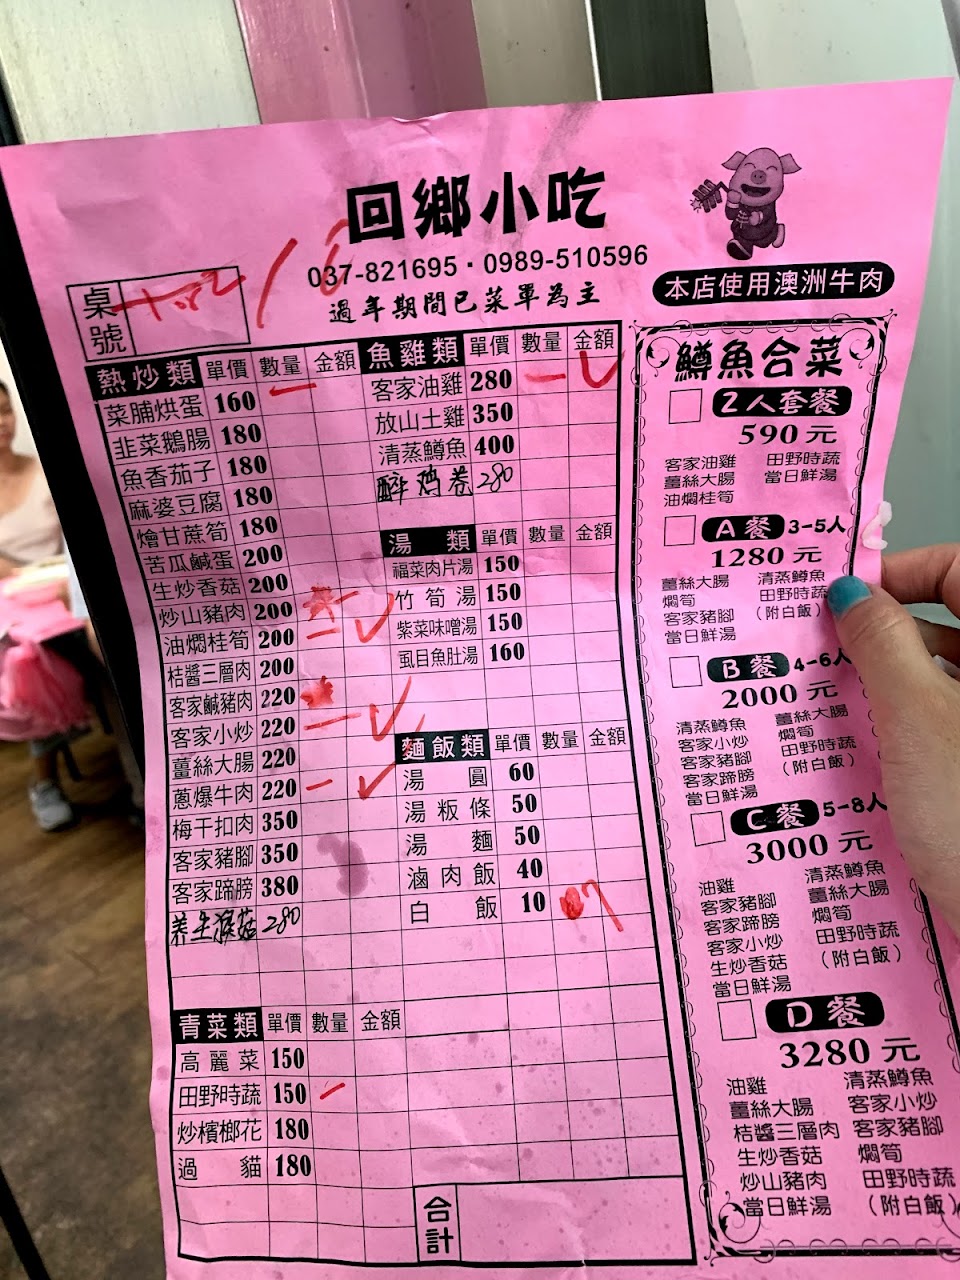 回鄉小吃
037-821695・0989-510596
過年期間已菜單為主
本店使用澳洲牛肉
桌號
熱炒類 單價 數量 金額
菜脯烘蛋 160
韭菜鵝腸 180
魚香茄子 180
麻婆豆腐 180
燴甘蔗筍 180
苦瓜鹹蛋 200
生炒香菇 200
炒山豬肉 200
油燜桂筍 200
桔醬三層肉 200
客家鹹豬肉 220
客家小炒 220
薑絲大腸 220
蔥爆牛肉 220
梅干扣肉 350
客家豬腳 350
客家蹄膀 380
养生猴菇 280
青菜類 單價 數量 金額
高麗菜 150
田野時蔬 150
炒檳榔花 180
過貓 180
魚雞類 單價 數量 金額
客家油雞 280
放山土雞 350
清蒸鱒魚 400
醉鸡卷 280
湯類 單價 數量 金額
福菜肉片湯 150
竹筍湯 150
紫菜味噌湯 150
虱目魚肚湯 160
麵飯類 單價 數量 金額
湯圓 60
湯粄條 50
湯麵 50
滷肉飯 40
白飯 10 7
合計
鱒魚合菜
2人套餐
590元
客家油雞 田野時蔬
薑絲大腸 當日鮮湯
油燜桂筍
A餐 3-5人
1280元
薑絲大腸 清蒸鱒魚
燜筍 田野時蔬
客家豬腳 (附白飯)
當日鮮湯
B餐 4-6人
2000元
清蒸鱒魚 薑絲大腸
客家小炒 燜筍
客家豬腳 田野時蔬
客家蹄膀 (附白飯)
當日鮮湯
C餐 5-8人
3000元
油雞 清蒸鱒魚
客家豬腳 薑絲大腸
客家蹄膀 燜筍
客家小炒 田野時蔬
生炒香菇 (附白飯)
當日鮮湯
D餐
3280元
油雞 清蒸鱒魚
薑絲大腸 客家小炒
桔醬三層肉 客家豬腳
生炒香菇 燜筍
炒山豬肉 田野時蔬
當日鮮湯 (附白飯)